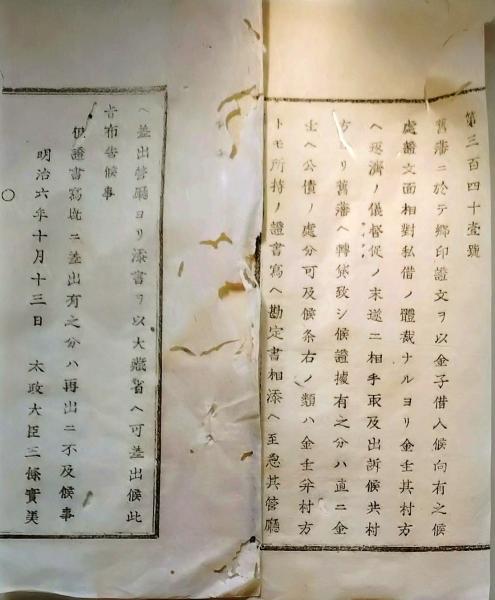 第三百四十壹號
舊藩ニ於テ郷印證文ヲ以金子借入候向有之候
處證文面相對私借ノ體裁ナルヨリ金主其村方
ヘ返濟ノ儀督促ノ末遂ニ相手取及出訴候共村
方ヨリ舊藩ヘ轉貸致シ候證據有之分ハ直ニ金
主ヘ公債ノ處分可及候条右ノ類ハ金主幷村方
トモ所持ノ證書寫ヘ勘定書相添ヘ至急其管廳
ヘ差出管廳ヨリ添書ヲ以大藏省ヘ可差出候此
旨布告候事
但證書寫既ニ差出有之分ハ再出ニ不及候事
明治六年十月十三日 太政大臣三條實美